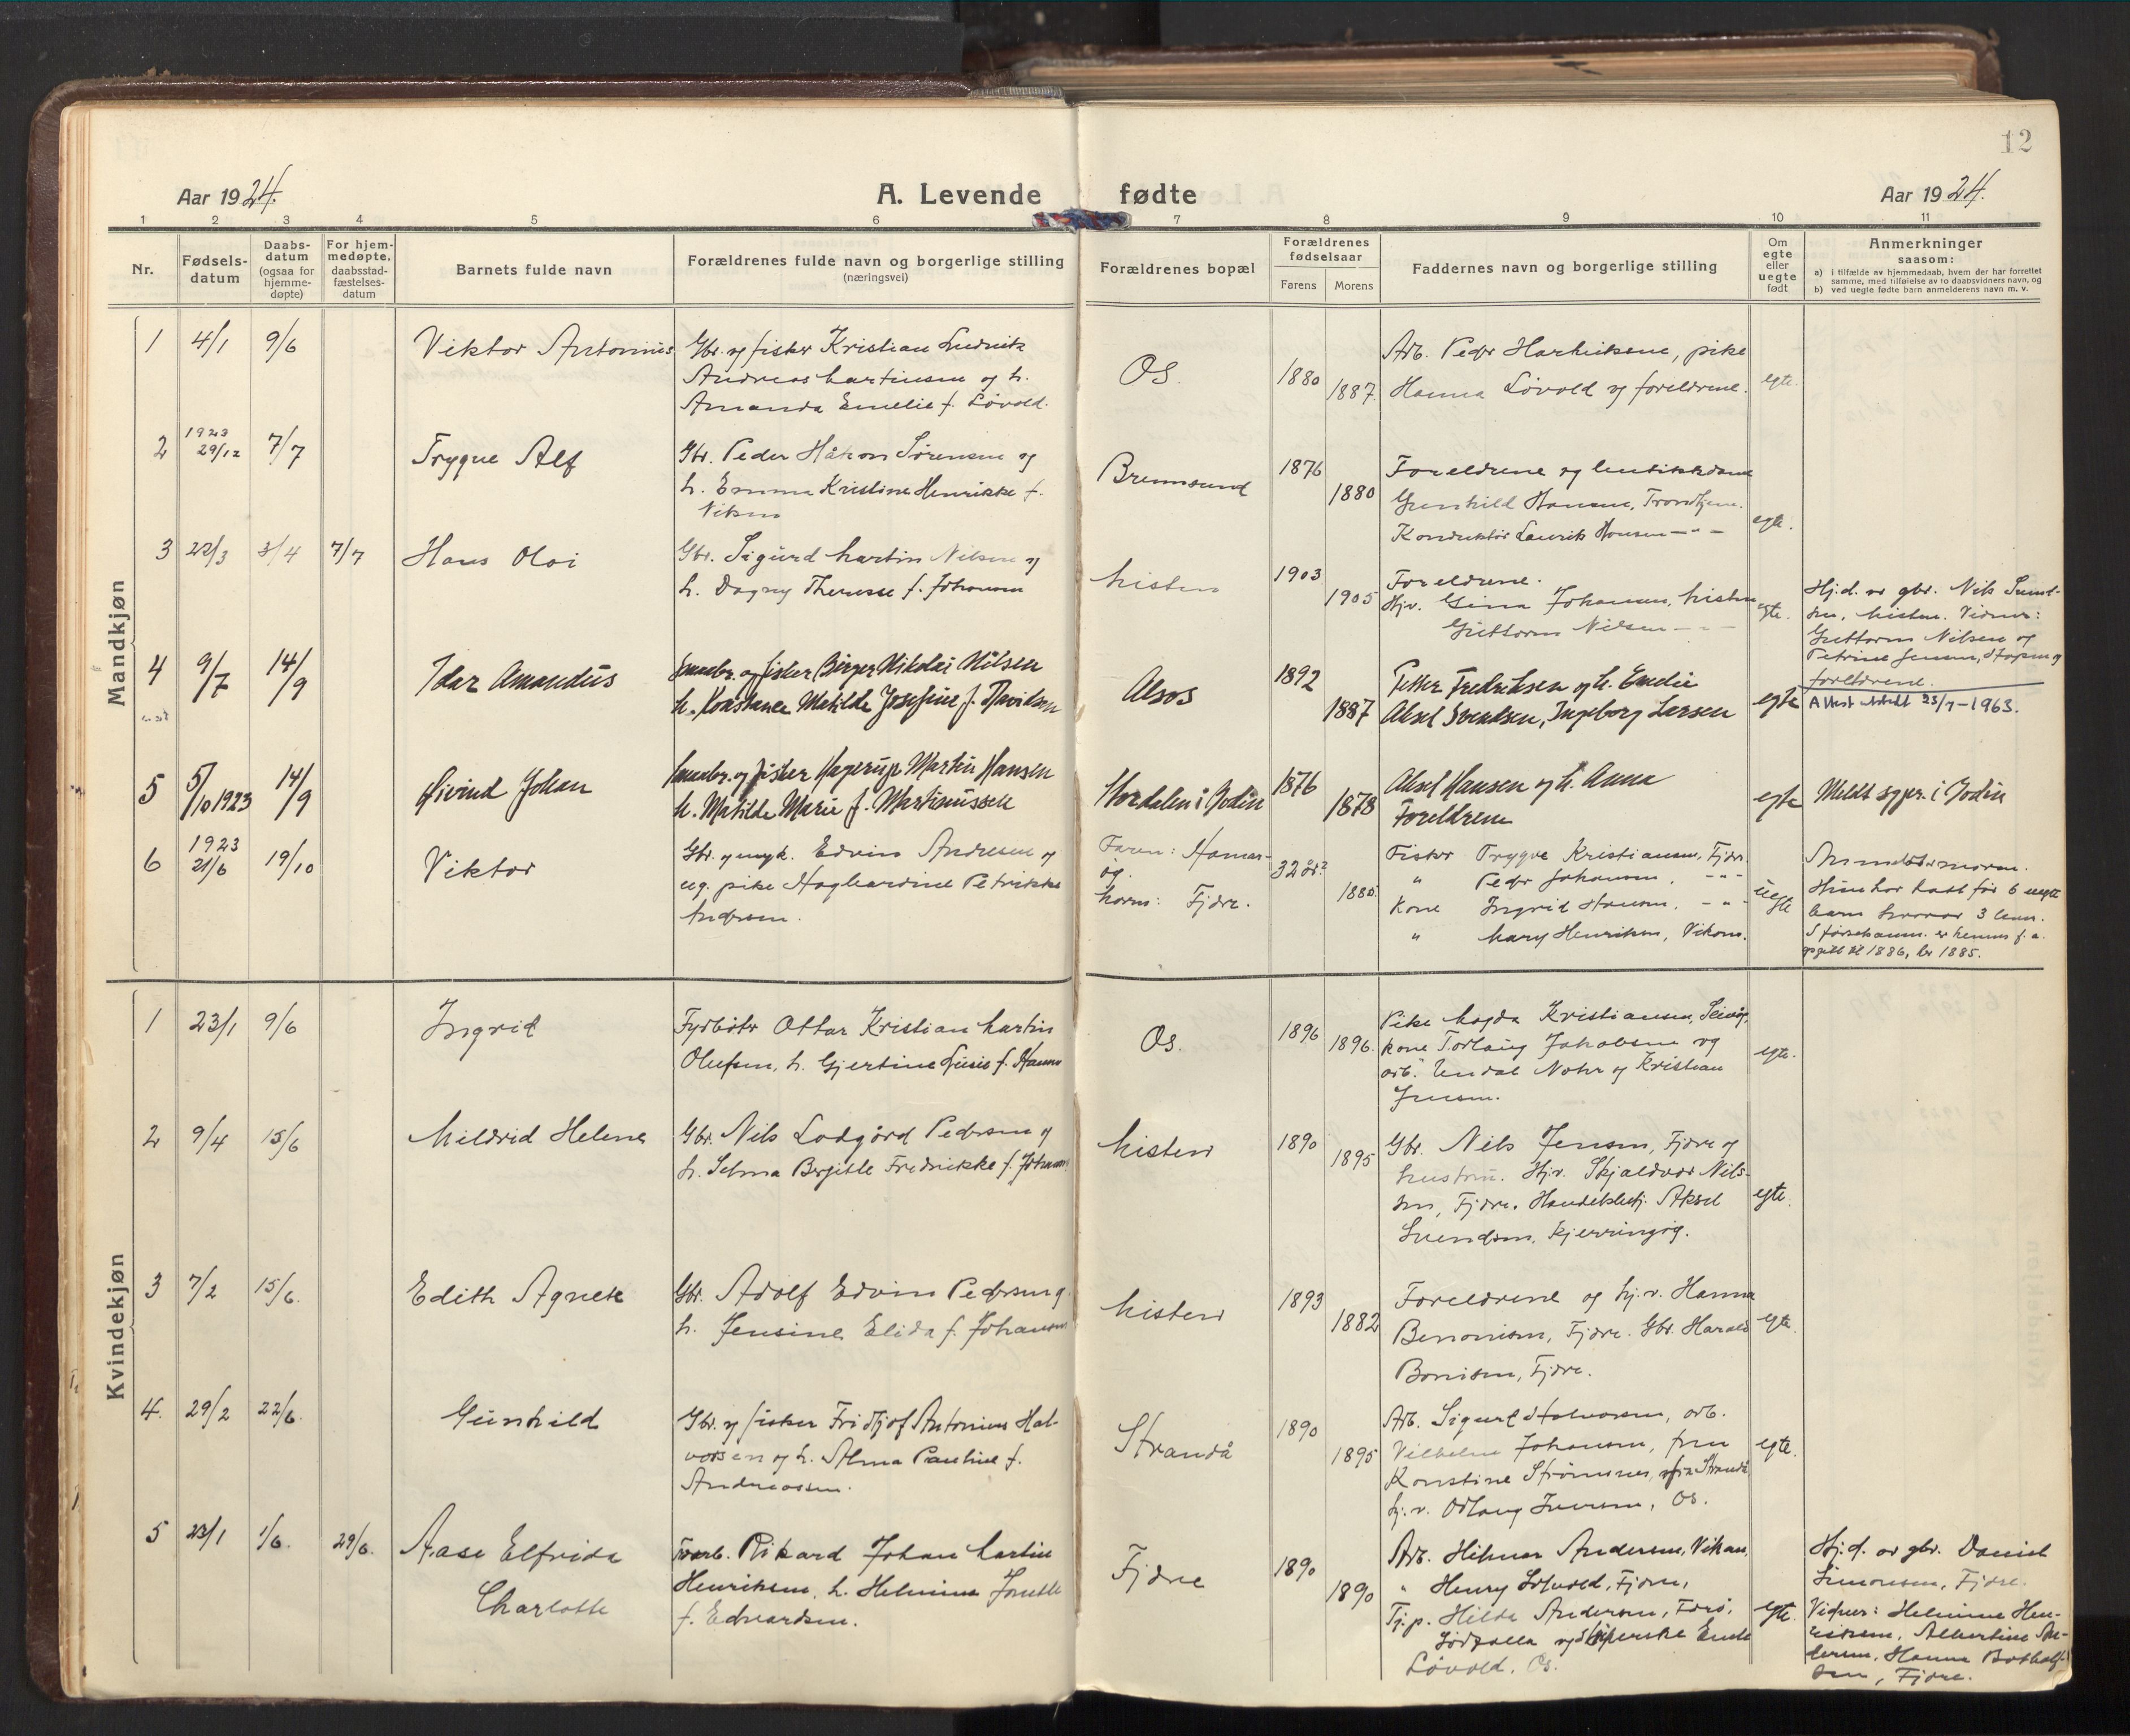 12
Aar 1924.
A. Levende fødte
Aar 1924.
1 2 3 4 5 6 7 8 9 10 11
Nr.
Fødsels-
datum
Daabs-
datum
(ogsaa for
hjemme-
døpte)
For hjem-
medøpte,
daabsstad-
fæstelses-
datum
Barnets fulde navn
Forældrenes fulde navn og borgerlige stilling
(næringsvei)
Forældrenes bopæl
Forældrenes
fødselsaar
Farens Morens
Faddernes navn og borgerlige stilling
Om
egte
eller
uegte
født
Anmerkninger
saasom:
a) i tilfælde av hjemmedaab, hvem der har forrettet
samme, med tilføielse av to daabsvidners navn, og
b) ved uegte fødte barn anmelderens navn m. v.
Mandkjøn
1 4/1 9/6 Viktor Antonius
Gbr. og fisker Kristian Ludvik
Andreas Martinsen og h.
Amanda Emelie f. Løvold.
Os. 1880 1887.
Arb. Peder Hartviksen, pike
Hanna Løvold og foreldrene.
egte.
2 1923 29/12 7/7 Trygve Alf
Gbr. Peder Håkon Sørensen og
h. Emma Kristine Henrikke f.
Viken
Brennsund 1876 1880
Foreldrene og butikkdame
Gunhild Hansen, Trondhjem.
Konduktør Laurits Hansen — " —
egte.
3 22/3 3/4 7/7 Hans Olai
Gbr. Sigurd Martin Nilsen og
h. Dagny Therese f. Johansen
Misten 1903 1905
Foreldrene.
Hj.v. Gina Johansen, Misten
Guttorm Nilsen — " —
egte.
Hj.d. av gbr. Nils
Misten. Vidner:
Guttorm Nilsen og
Petrine Jensen, og
foreldrene.
4 9/7 14/9 Idar Amandus
Smaabr. og fisker Birger Nikolai Nilsen
h. Konstance Matilde Josefine f. Davidsen
Alsos 1892 1887
Petter Fredriksen og h. Emelie
Aksel Svendsen, Ingeborg Larsen
egte
Attest utstedt 23/7-1963.
5 5/10 1923 14/9 Øivind Johan
Smaabr. og fisker Hagerup Martin Hansen
h. Matilde Marie f. Martinussen
Stordalen i Bodin 1876 1878
Aksel Hansen og h. Anna
Foreldrene
egte
Meldt sgpr. i Bodin
6 1923 21/6 19/10 Viktor
Gbr. og Edvin Andresen og
ug. pike Hagbardine Petrikke
Andersen.
Faren: Hamar-
øy.
Moren: Fjære.
32 år? 1885.
Fisker Trygve Kristiansen, Fjære.
" Peder Johansen, — " —
Kone Ingrid Hansen, — " —
" Mary Henriksen, Vikan.
uegte
Anmeldt av moren.
Hun har hatt før 6 uegte
barn hvorav 3 lever.
er hennes f. a.
opgitt til 1886, her 1885.
Kvindekjøn
1 23/1 9/6 Ingrid
Fyrbøter Ottar Kristian Martin
Olufsen, h. Gjertine Luise f. Hansen
Os. 1896 1896.
Pike Magda Kristiansen,
kone Torlaug Jakobsen og
arb. Nohr og Kristian
Jensen.
egte.
2 9/4 15/6 Mildrid Helene
Gbr. Nils Lodgård Pedersen og
h. Selma Bergitte Fredrikke f. Johansen
Misten 1890 1895
Gbr. Nils Jensen, Fjære og
hustru. Hj.v. Skjaldvor Nils-
sen, Fjære. Handelsbetj. Aksel
Svendsen, Kjerringøy.
egte.
3 7/2 15/6. Edith Agnete
Gbr. Adolf Edvin Pedersen og
h. Jensine Elida f. Johansen
Misten 1893 1882
Foreldrene og hj.v. Hanna
Benonisen, Fjære. Gbr. Harald
Bonisen, Fjære.
egte.
4. 29/2 22/6. Gunhild
Gbr. og fisker Fridtjof Antonius Hal-
vorsen og h. Alma Pauline f.
Andreassen.
Strandå 1890 1895
Arb. Sigurd Halvorsen, arb.
Vilhelm Johansen, fru
Konstine Strømsnes, Strandå
hj.v. Odlaug Iversen, Os.
egte.
5 23/1 1/6. 29/6. Aase Elfrida
Charlotte
Rikard Johan Martin
Henriksen, h. Helmine Jonette
f. Edvardsen.
Fjære 1890 1890
Arb. Hilmar Andersen, Vikan,
" Henry Løvold, Fjære,
Tj.p. Hilda Andersen,
Løvold, Os.
egte.
Hj.d. av gbr. Daniel
Simonsen, Fjære.
Vidner: Helmine Hen-
riksen, Albertine An-
dersen, Hanna
sen, Fjære.